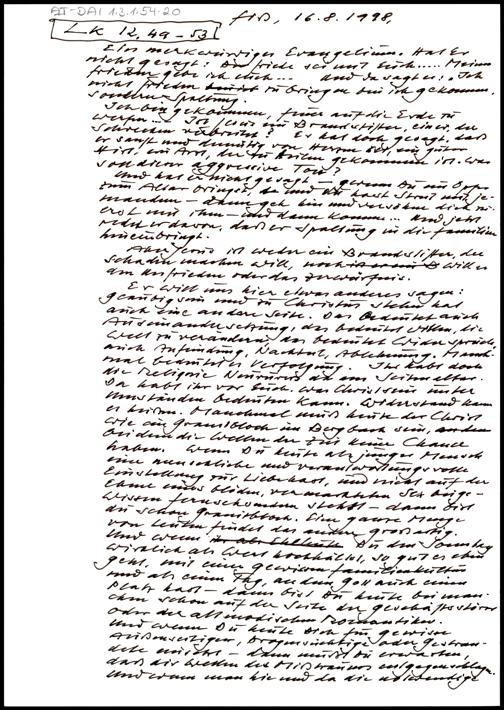 BI-DAI 1.3.1.54-20
Fiß, 16.8.1998,
Lk 12, 49-53
Ein merkwürdiges Evangelium. Hat Er
nicht gesagt: Der Friede sei mit Euch..... Meinen
Frieden gebe ich Euch... Und da sagt er: Ich
nicht Frieden zu bringen bin ich gekommen,
sondern Spaltung.
Ich bin gekommen, Feuer auf die Erde zu
werfen... Ist Jesus ein Brandstifter, einer, der
Schrecken verbreitet? Es hat doch gesagt, daß
er sanft und demütig von Herzen sei, ein guter
Hirt, ein Arzt, der zu heilen gekommen ist. Was
soll dieser aggressive Ton?
Und hat er nicht gesagt - wenn Du ein Opfer
zum Altar bringst, da und Du hast Streit mit je-
manden - dann geh hin und versöhne dich zu
erst mit ihm - und dann komme... Und jetzt
redet er davon, daß er Spaltung in die Familien
hineinbringt.
Aber Jesus ist weder ein Brandstifter, der
Schaden machen will, noch will er
den Unfrieden oder das Zerwürfnis.
Er will uns hier etwas anderes sagen:
Gläubig sein und zu Christus stehen hat
auch eine andere Seite. Das bedeutet auch
Auseinandersetzung, das bedeutet Willen, die
Welt zu verändern, das bedeutet Widerspruch,
auch Anfeindung, Nachteil, Ablehnung. Manch-
mal bedeutet es Verfolgung. Ihr habt doch
die Selige Neururer da am Seitenaltar.
Da habt ihr vor Euch, was Christsein unter
Umständen bedeuten kann. Widerstand kann
es heißen. Manchmal muß heute der Christ
wie ein Granitblock im Bergbach sein,
bei dem die Wellen der Zeit keine Chance
haben. Wenn Du heute als junger Mensch
eine menschliche und verantwortungsvolle
Einstellung zur Liebe hast, und nicht auf der
Ebene eines blöden, vermarkteten Sex
stehst - dann bist
du schon Granitblock. Eine ganze Menge
von Leuten findet das andere großartig.
Und wenn Du den Sonntag
wirklich als Wert hochhältst, so gut es eben
geht, mit einer gewissen Familienkultur
und als einen Tag, an dem Gott auch einen
Platz hat - dann bist Du heute bei man-
chen schon auf der Seite der Geschäftsstörer
oder der altmodischen Romantiker.
Und wenn Du heute Dich für gewisse
Außenseitiger, Drogensüchtige oder Gestran-
dete einsetzt - dann mußt Du erwarten,
daß dir Wellen des Mißtrauens entgegenschlagen.
Und wenn man hie und da die notwendige